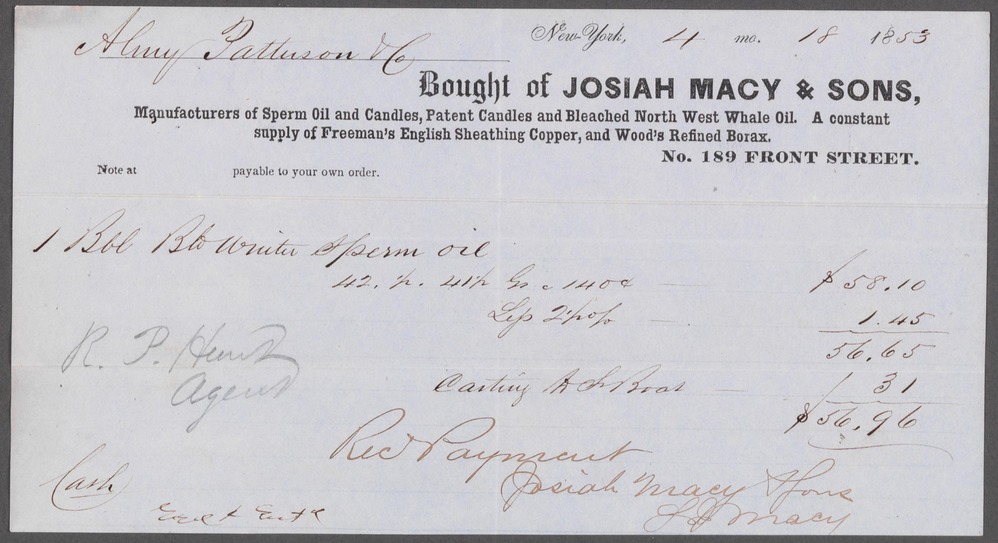 New-York, 4 mo. 18 1853
Almy Patterson & Co
Bought of JOSIAH MACY & SONS,
Manufacturers of Sperm Oil and Candles, Patent Candles and Bleached North West Whale Oil. A constant
supply of Freeman's English Sheathing Copper, and Wood's Refined Borax.
No. 189 FRONT STREET.
Note at payable to your own order.
1 Bbl Winter Sperm Oil
42. 41½ Gs 140¢ $58.10
2½ % 1.45
56.65
Carting & Boat 31
$56.96
R. P. Hunt
Agent
Recd Payment
Josiah Macy & Sons
Macy
Cash